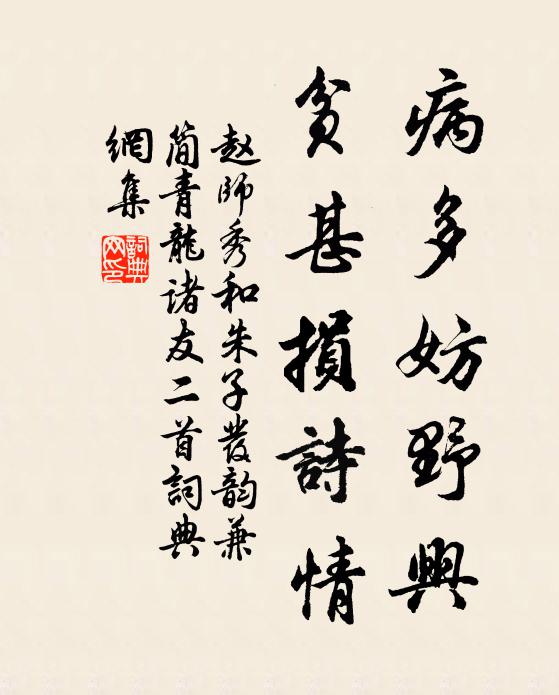 病多妨野興
貧甚損詩情
赵師秀和朱子發韵兼
简青龍诸友二首詞典
網集
詞典网印